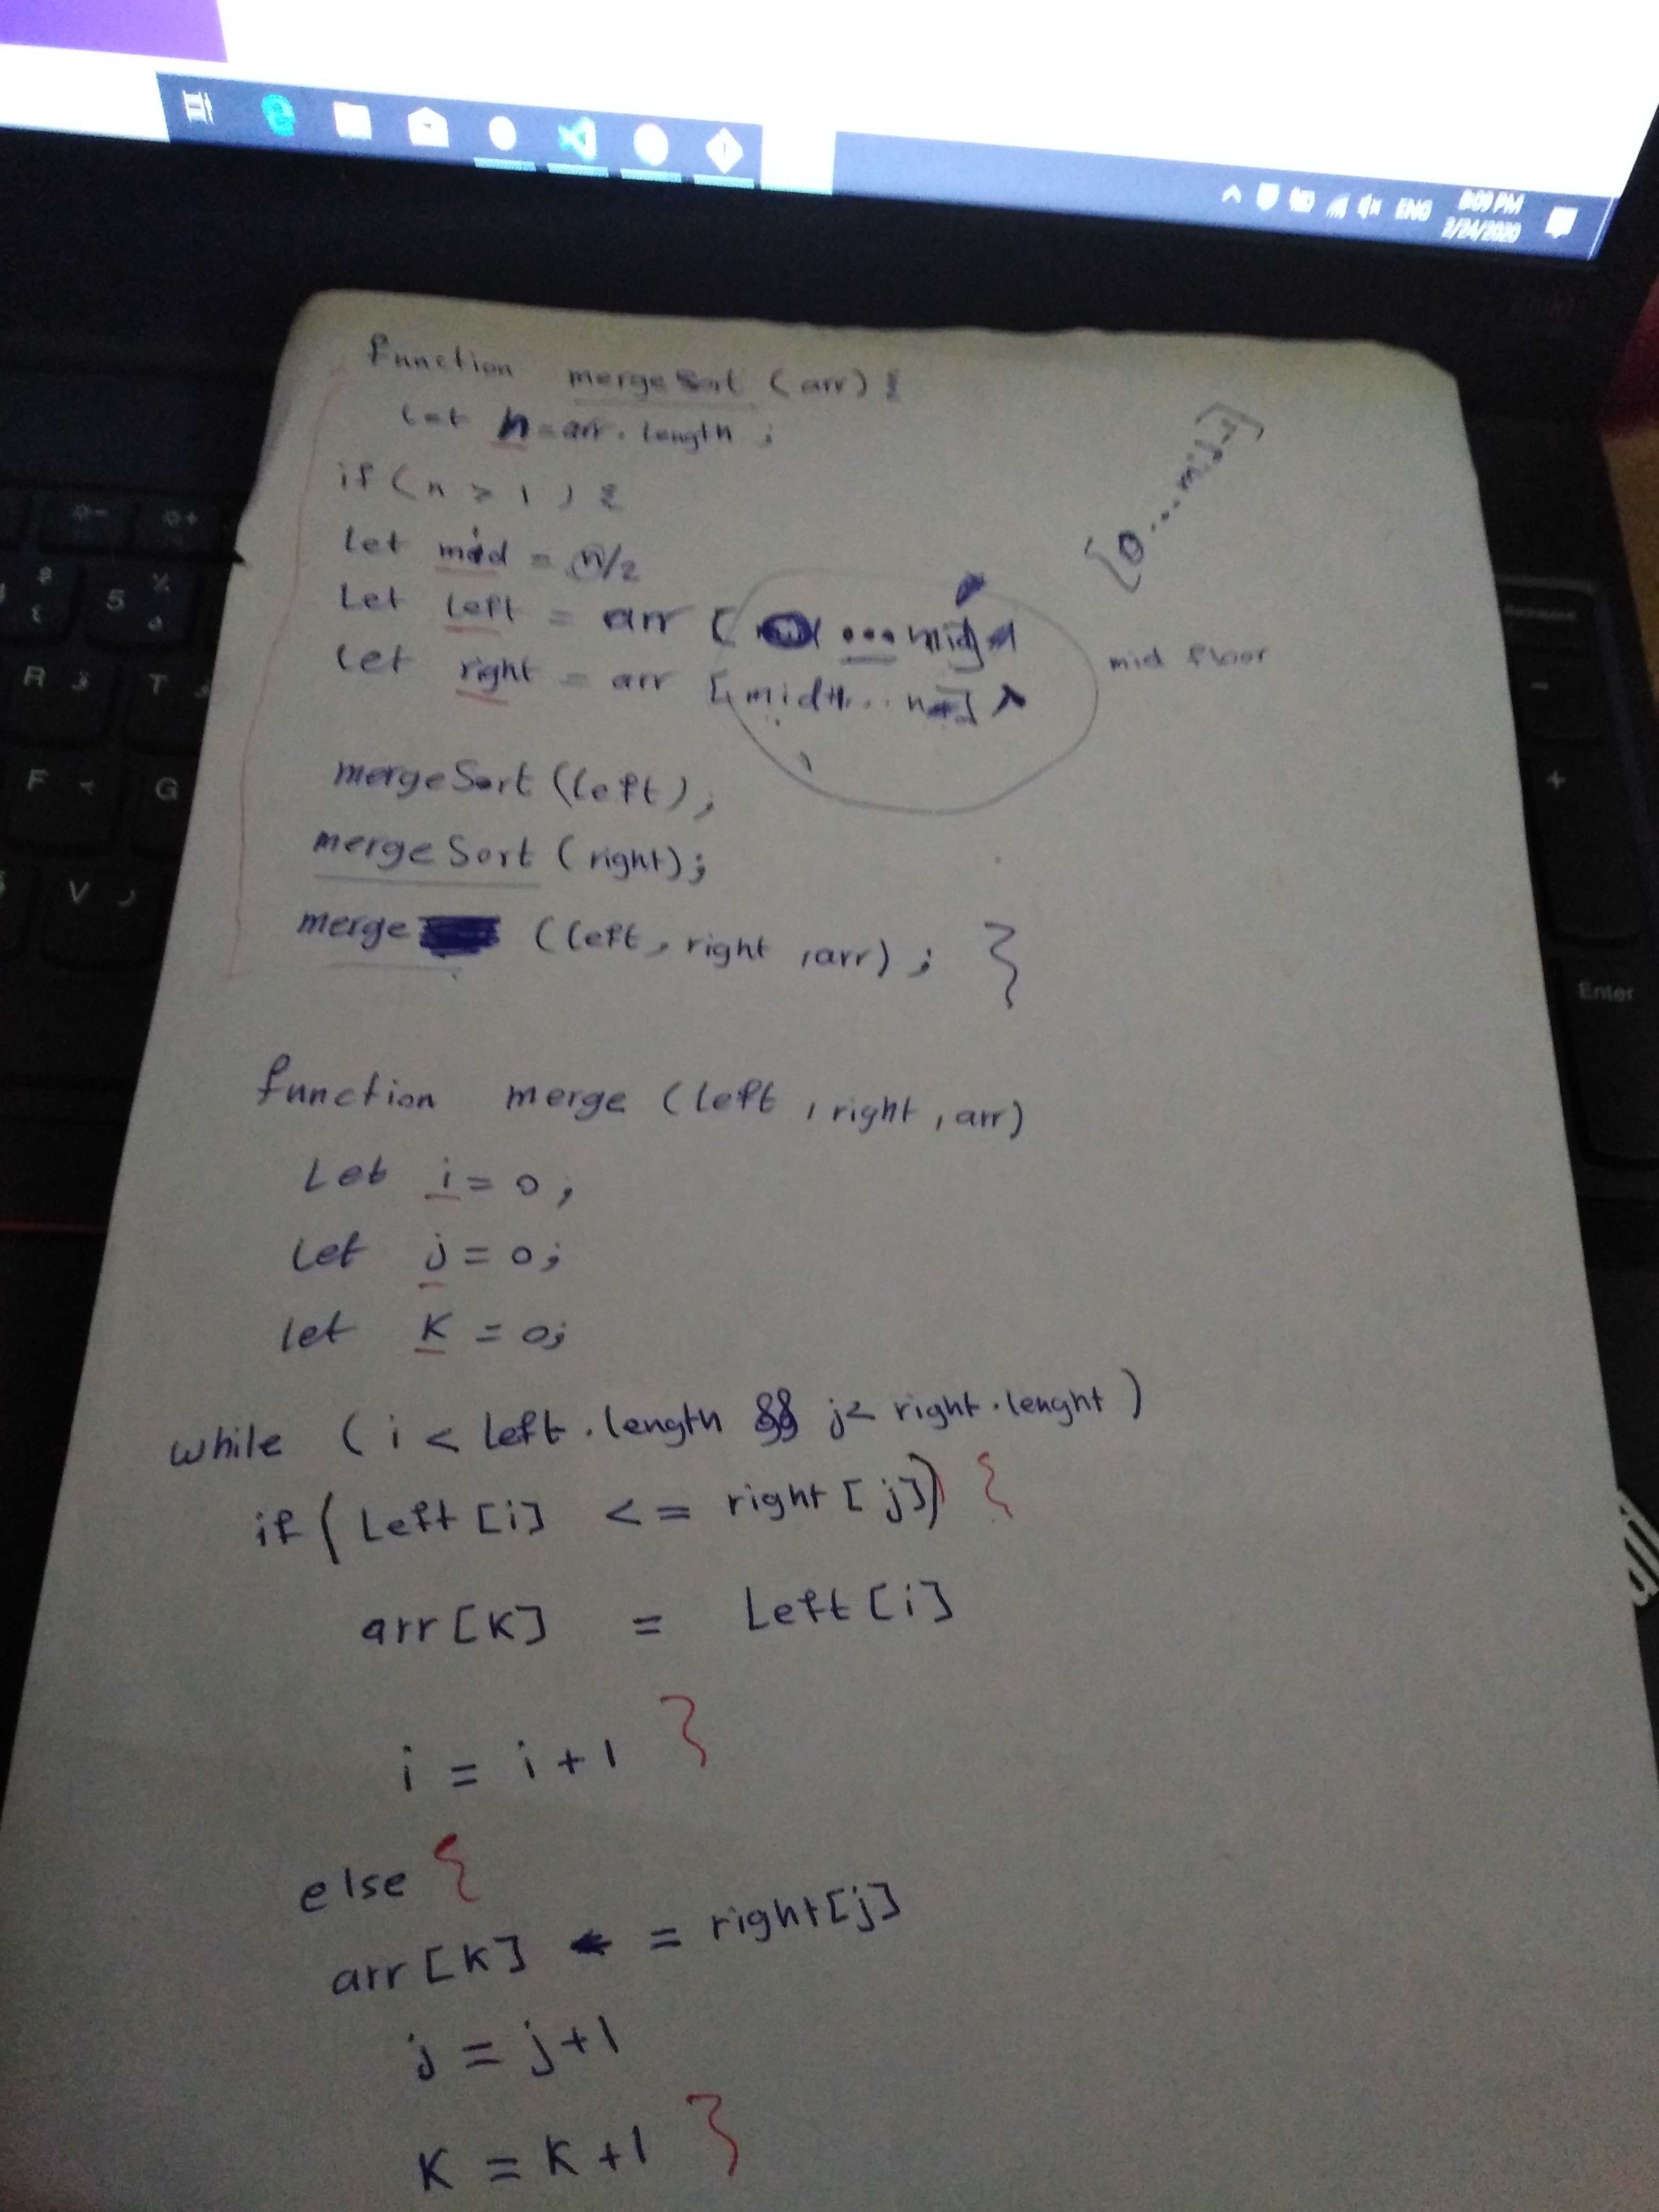 ENG
8:09 PM
2/24/2020
function mergeSort (arr) {
let n = arr.length ;
if (n > 1) {
let mid = n/2
Let left = arr [ ... mid]
let right = arr [mid+1... n]
[0...mid-1]
mid floor
mergeSort (left);
mergeSort (right);
merge (left, right, arr) ; }
function merge (left, right, arr)
Let i = 0;
let j = 0;
let K = 0;
while (i < left.length && j< right.lenght)
if (Left [i] <= right [j]) {
arr [K] = Left [i]
i = i+1 }
else {
arr [K] = right [j]
j = j+1
K = K+1 }
5
%
R
T
F
G
V
+
-
Enter